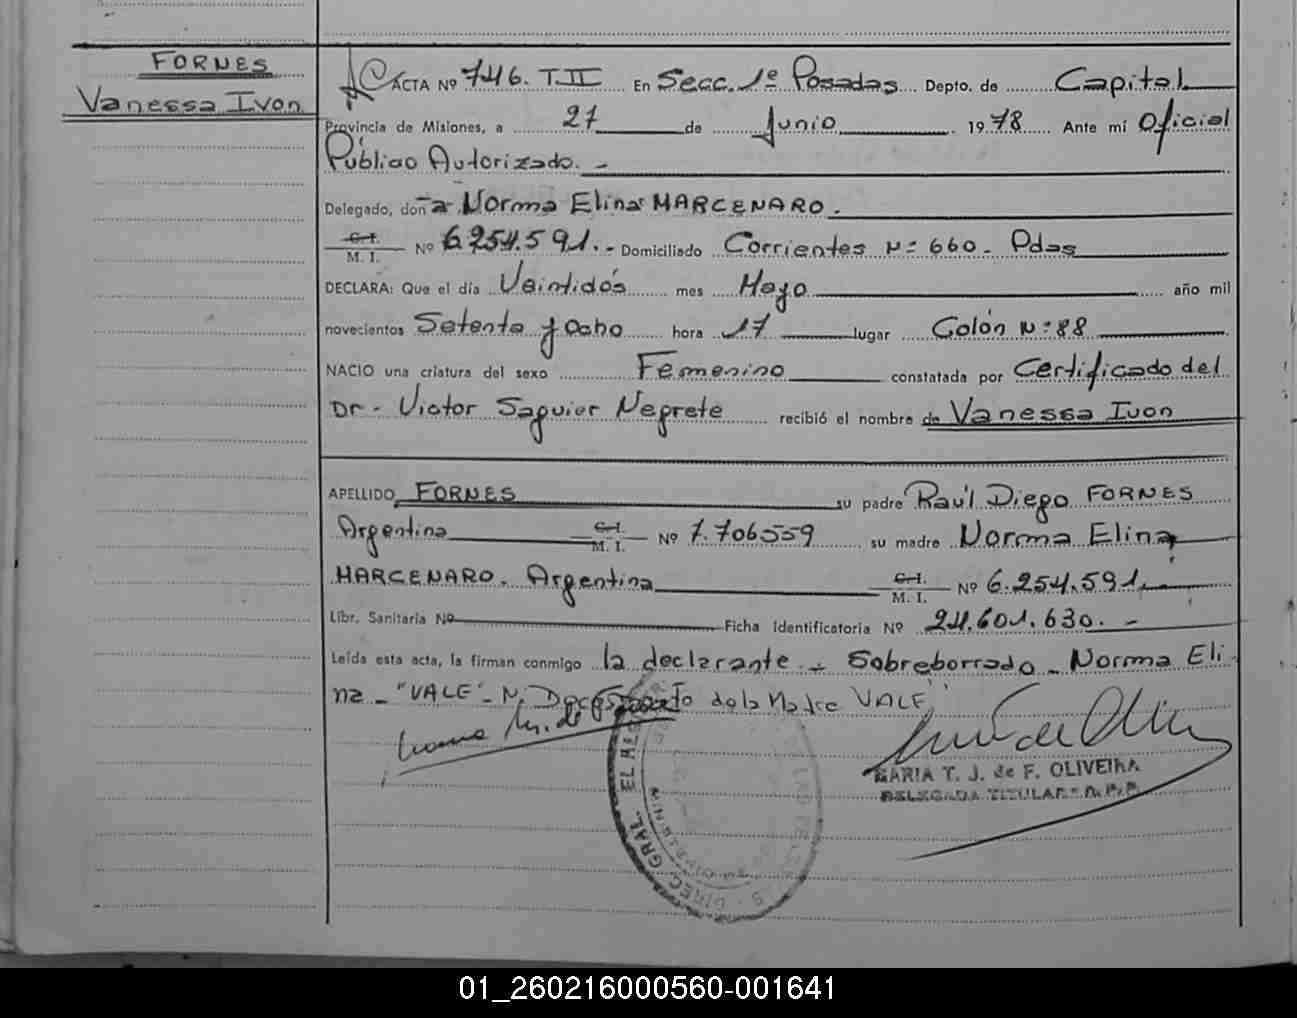 FORNES
Vanessa Ivon
ACTA Nº 746. T.II En Secc. 1º Posadas Depto. de Capital
Provincia de Misiones, a 27 de Junio 1978 Ante mí Oficial
Público Autorizado. -
Delegado, don a Norma Elina MARCENARO.
C.I.
M. I. Nº 6.254.591. - Domiciliado Corrientes Nº 660 - Pdas
DECLARA: Que el día Veintidós mes Mayo año mil
novecientos Setenta y Ocho hora 17 lugar Colón Nº 88
NACIO una criatura del sexo Femenino constatada por Certificado del
Dr. Victor Saguier Negrete recibió el nombre de Vanessa Ivon
APELLIDO FORNES su padre Raúl Diego FORNES
Argentina C.I. M. I. Nº 7.706559 su madre Norma Elina
MARCENARO. Argentina C.I. M. I. Nº 6.254.591.
Libr. Sanitaria Nº Ficha Identificatoria Nº 24.601.630. -
Leída esta acta, la firman conmigo la declarante - Sobreborrado - Norma Eli
na - "VALE" - N. Documento de la Madre VALE"
MARIA T. J. de F. OLIVEIRA
DELEGADA TITULAR
DIREC. GRAL. EL
01_260216000560-001641